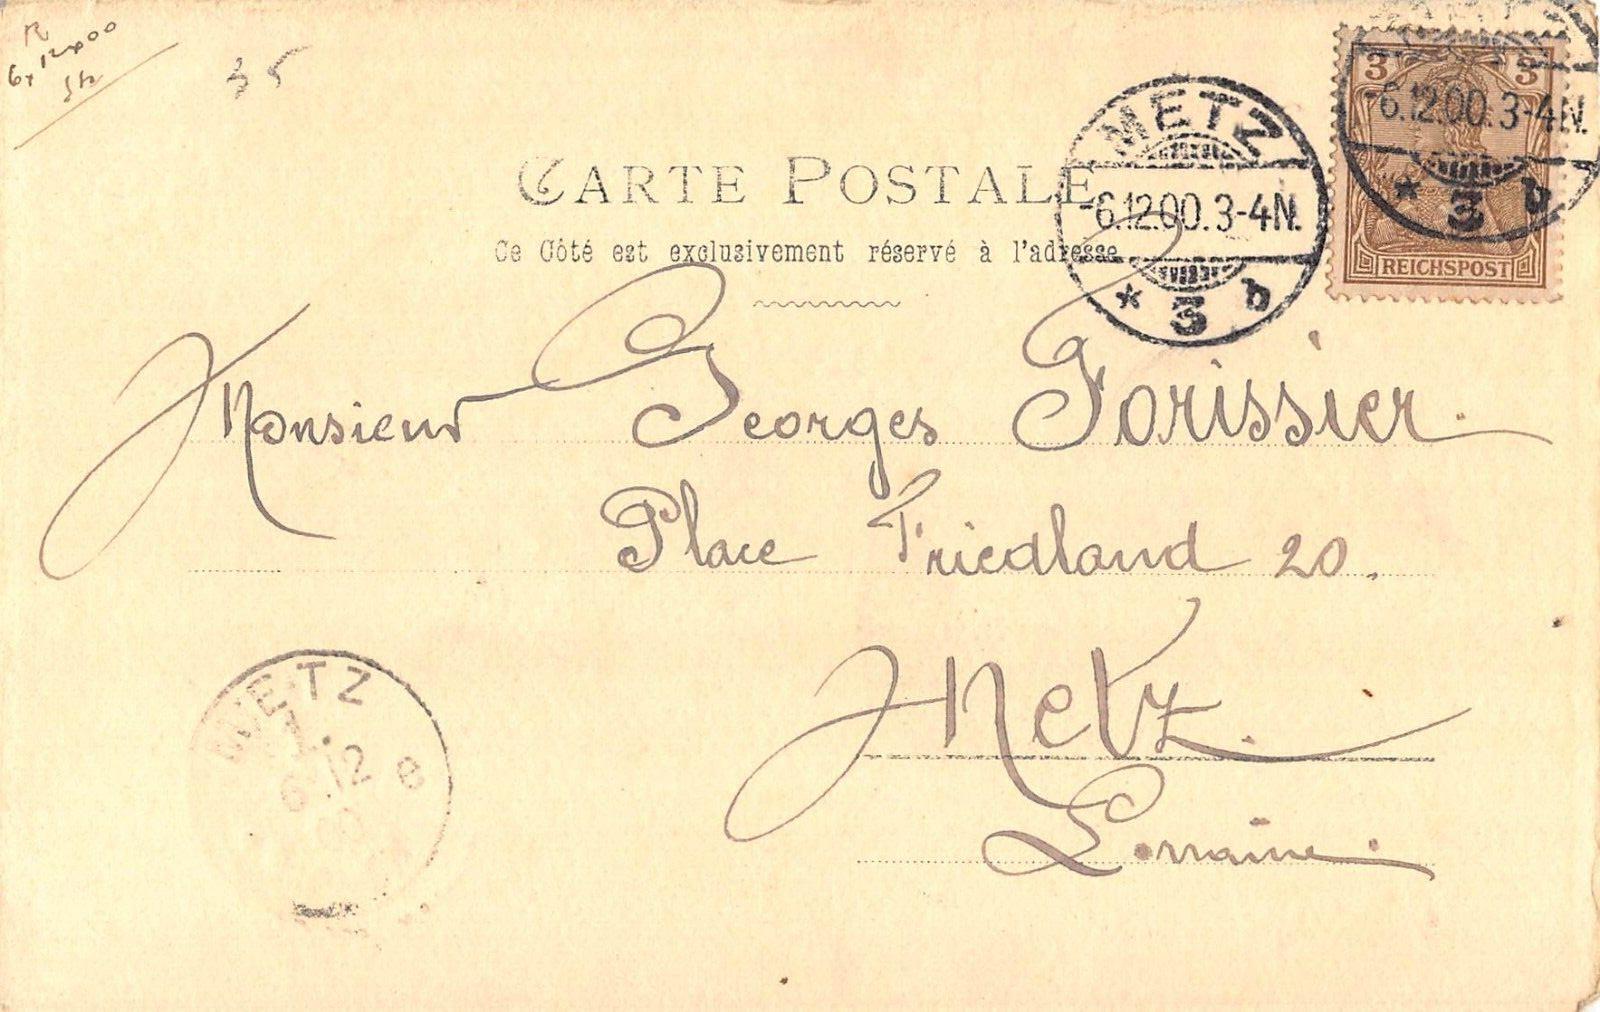 R
6 x 12 x 00
35
3 3
REICHSPOST
-6.12.00.3-4N.
* 3 b
METZ
-6.12.00.3-4N.
* 3 b
CARTE POSTALE
Ce Côté est exclusivement réservé à l'adresse
Monsieur Georges Forissier.
Place Friedland 20.
Metz.
Lorraine.
METZ
1.
6.12 e
00